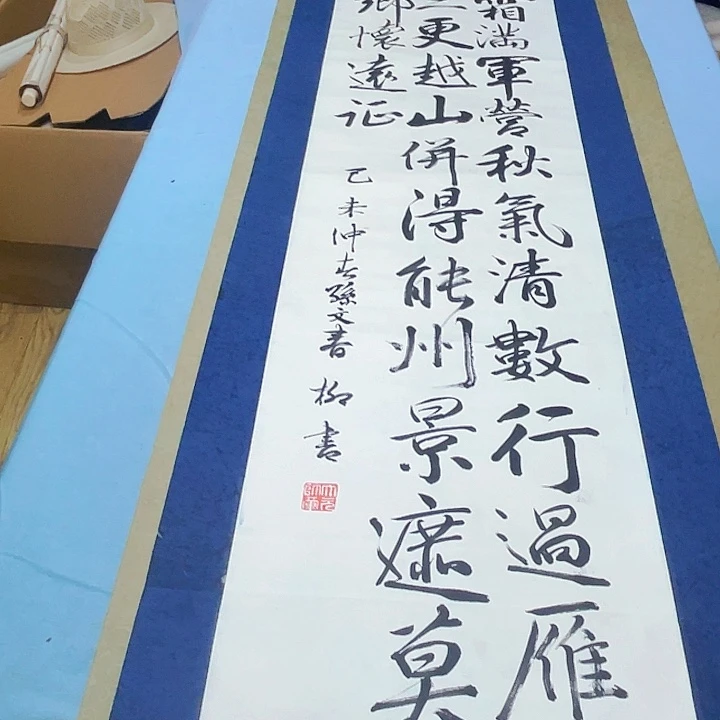 霜滿軍營秋氣清數行過雁
三更越山併得能州景遮莫
鄉懷遠征
己未仲春孫文書 柳書